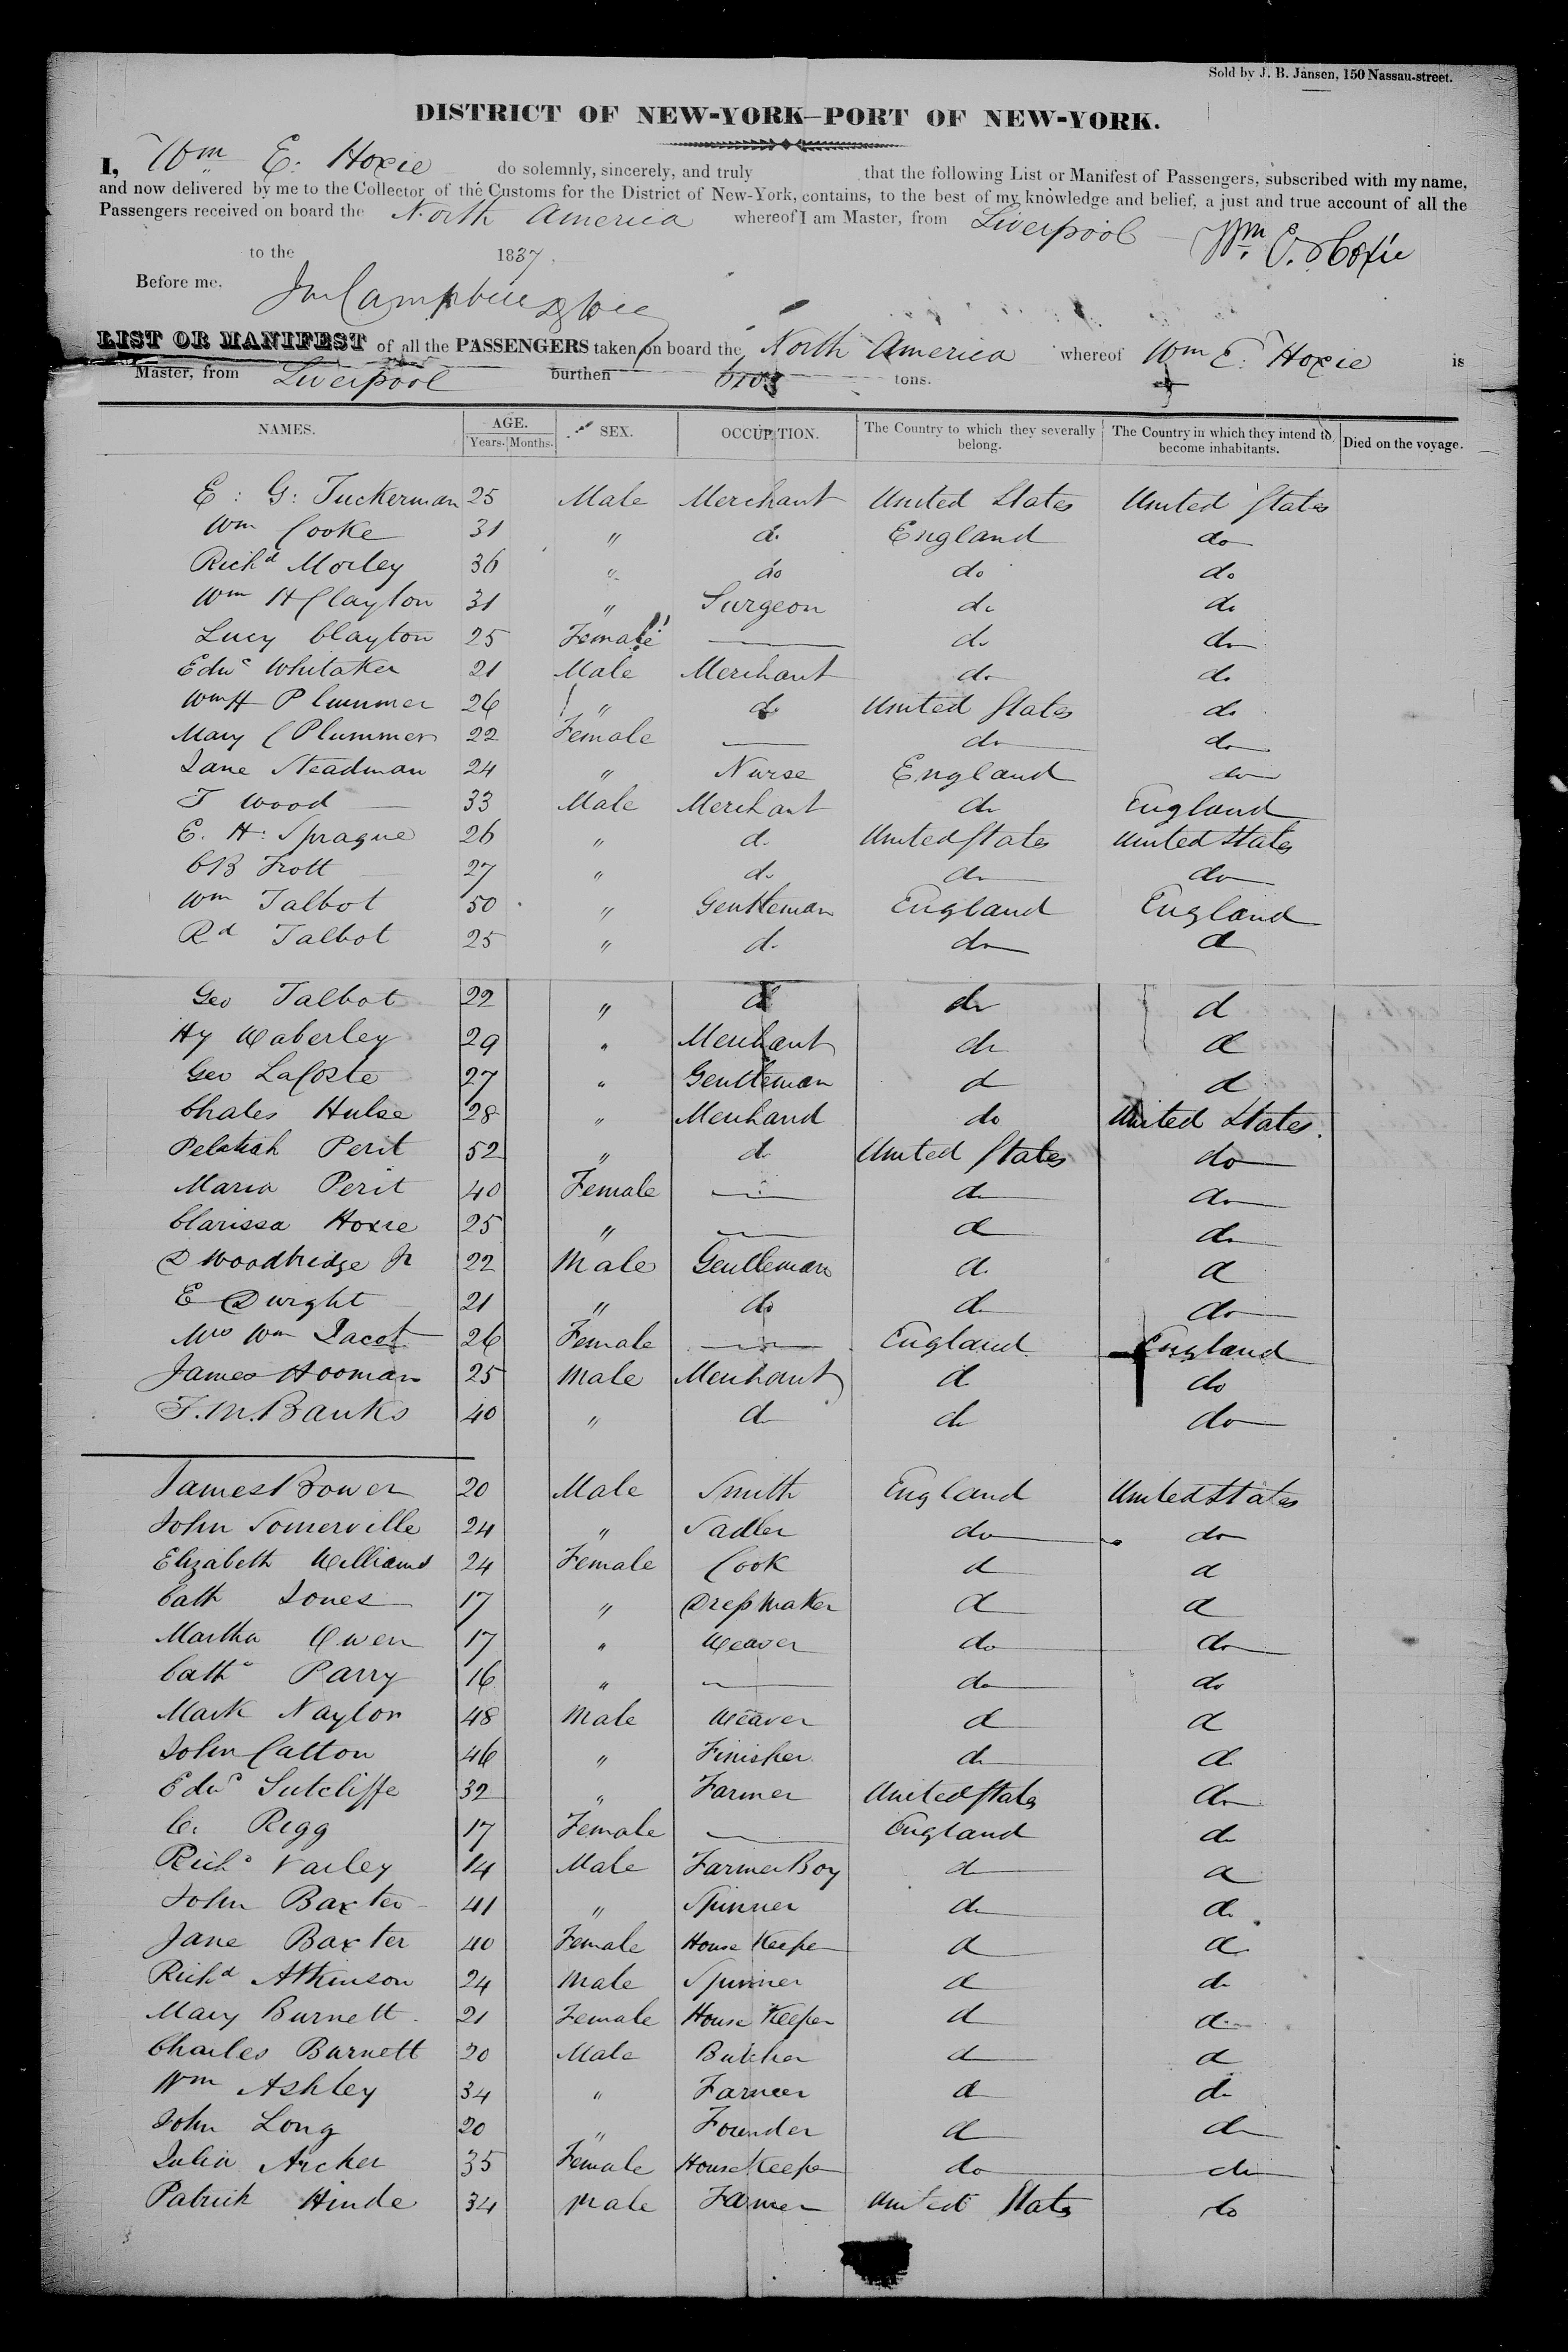 Sold by J. B. Jansen, 150 Nassau-street.
DISTRICT OF NEW-YORK—PORT OF NEW-YORK.
I, Wm E. Hoxie do solemnly, sincerely, and truly that the following List or Manifest of Passengers, subscribed with my name,
and now delivered by me to the Collector of the Customs for the District of New-York, contains, to the best of my knowledge and belief, a just and true account of all the
Passengers received on board the North America whereof I am Master, from Liverpool
Wm E. Hoxie
to the 1837.
Before me.
LIST OR MANIFEST of all the PASSENGERS taken on board the North America whereof Wm E. Hoxie is
Master, from Liverpool burthen tons.
NAMES. AGE. Years. Months. SEX. OCCUPATION. The Country to which they severally belong. The Country in which they intend to become inhabitants. Died on the voyage.
E: G: Tuckerman 25 Male Merchant United States United States
Wm Cooke 31 " do England do
Richd Morley 36 " do do do
Wm H Clayton 31 " Surgeon do do
Lucy Clayton 25 Female — do do
Edwd Whitaker 21 Male Merchant do do
Wm H Plummer 26 " do United States do
Mary C Plummer 22 Female — do do
Jane Steadman 24 " Nurse England do
T Wood 33 Male Merchant do England
E. H: Sprague 26 " do United States United States
CB Trott 27 " do do do
Wm Talbot 50 " Gentleman England England
Rd Talbot 25 " do do d
Geo Talbot 22 " d do d
Hy Waberley 29 " Merchant do d
Geo LaCoste 27 " Gentleman d d
Chales Hulse 28 " Merchand do United States.
Pelatiah Perit 52 " d United States do
Maria Perit 40 Female — d do
Clarissa Hoxie 25 " — d do
D Woodbridge Jr 22 Male Gentleman d d
E Dwight 21 " do d do
Mrs Wm Jacot 26 Female — England England
James Hooman 25 Male Merchant d do
T. M. Banks 40 " d do do
James Bower 20 Male Smith England United States
John Somerville 24 " Sadler do do
Elizabeth Williams 24 Female Cook d d
Cath Jones 17 " Dress Maker d d
Martha Owen 17 " Weaver do do
Cathe Parry 16 " — do do
Mark Naylor 48 Male Weaver d d
John Catton 46 " Finisher d d
Edwd Sutcliffe 32 " Farmer United States do
C. Rigg 17 Female — England do
Richd Varley 14 Male Farmer Boy d d
John Baxter 41 " Spinner d d
Jane Baxter 40 Female House Keeper d d
Richd Atkinson 24 Male Spinner d do
Mary Burnett 21 Female House Keeper d d
Charles Burnett 20 Male Butcher d d
Wm Ashley 34 " Farmer d do
John Long 20 " Founder d do
Julia Archer 35 Female House Keeper do do
Patrick Hinde 34 Male Farmer United States do